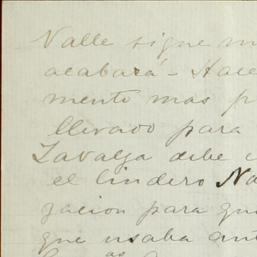 Valle sigue m
acabará - Hace
mento mas p
llevado para
Zavalza debe
el lindero No
gacion para que
que usaba ant